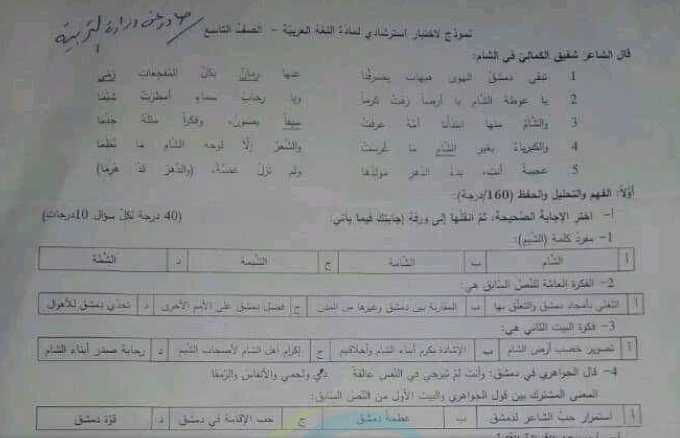 صادر عن وزارة التربية
نموذج لاختبار استرشادي لمادة اللغة العربية - الصف التاسع
قال الشاعر شفيق الكمالي في الشام:
1 تبقى دمشق الهوى هيهات يصرفنا عنها زمان بكل المفجعات رمى
2 يا غوطة الشام يا أرضاً زهت كرماً ويا رحاب سماءٍ أمطرت شيما
3 والشام منها ابتدأنا أمة عرفت سيفاً يصون، وفكراً
4 والكبرياء بغير الشام ما غرست والشعر إلا لوجه الشام ما نظما
5 عجيبة أنتِ، بدء الدهر مولدها ولم تزل غضة، (والدهر قد هرما)
أولاً: الفهم والتحليل والحفظ (160/درجة):
أ- اختر الإجابة الصحيحة، ثم انقلها إلى ورقة إجابتك فيما يأتي: (40 درجة لكل سؤال 10درجات)
1- مفرد كلمة (الشيم):
أ الشام ب الشامة ج الشيمة د
2- الفكرة العامة للنص السابق هي:
أ التغني بأمجاد دمشق والتعلق بها ب المقارنة بين دمشق وغيرها من المدن ج فضل دمشق على الأمم الأخرى د تحدي دمشق للأهوال
3- فكرة البيت الثاني هي:
أ تصوير خصب أرض الشام ب الإشادة بكرم أبناء الشام وأخلاقهم ج إكرام أهل الشام لأصحاب الشيم د رحابة صدر أبناء الشام
4- قال الجواهري في دمشق: وأنت لم تبرحي في النفس عالقة دمي ولحمي والأنفاس والرمقا
المعنى المشترك بين قول الجواهري والبيت الأول من النص السابق:
أ استمرار حب الشاعر لدمشق ب عظمة دمشق ج حب الإقامة في دمشق د قوة دمشق